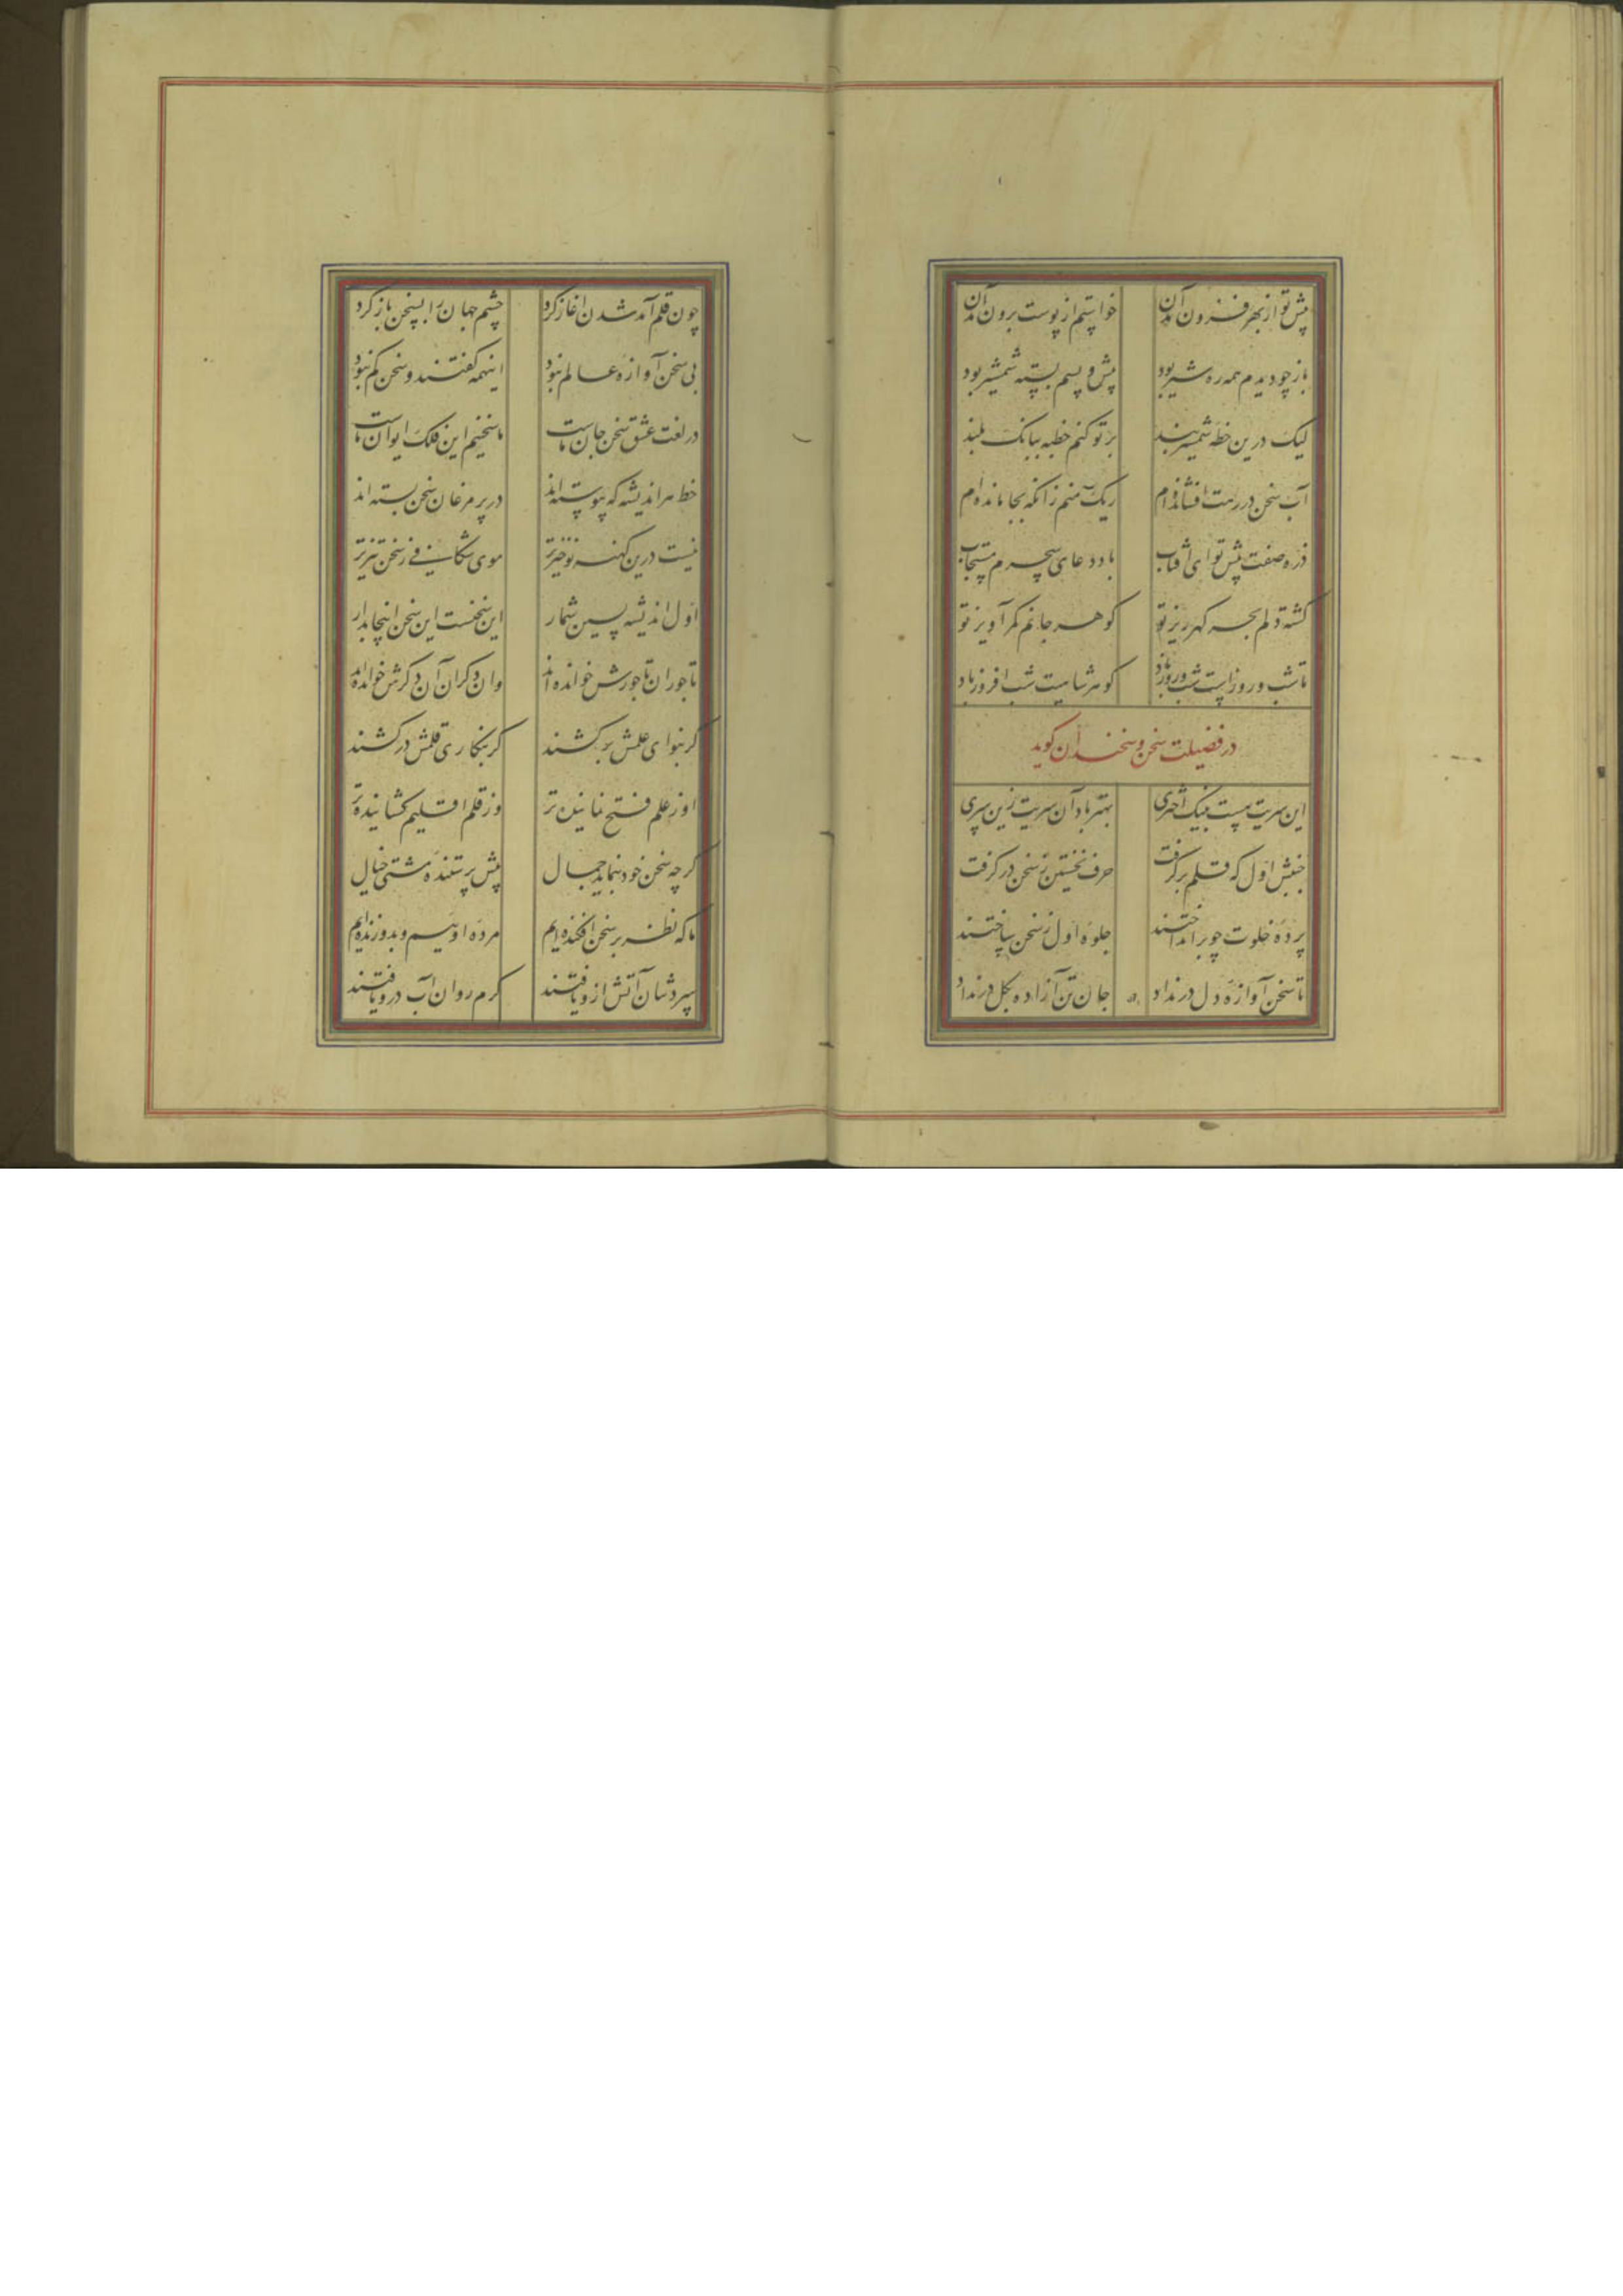 پیش تو از بهر فزون آمدن خواستم از پوست برون آمدن
باز چو دیدم همه ره شیر بود پیش و پسم بسته شمشیر بود
لیک درین خطه شمشیر بند بر تو کنم خطبه ببانک بلند
آب سخن در رهت افشانده‌ام ریک منم زانکه بجا مانده‌ام
ذره صفت پیش تو ای آفتاب باد دعای سحرم مستجاب
کشته دلم بحر کهر ریز تو کوهر جانم کمر آویز تو
تا شب و روزاست شبت روز باد کوهر شاهیت شب افروز باد
در فضیلت سخن و سخندان کوید
این سریت هست بنیک اختری بهتر باد آن سریت زین سری
جنبش اول که قلم برکرفت حرف نخستین ز سخن درکرفت
پرده خلوت چو برانداختند جلوه اول ز سخن ساختند
تا سخن آوازه دل در نداد جان تن آزاده بکل در نداد
چون قلم آمد شدن آغاز کرد چشم جهان را بسخن باز کرد
بی سخن آوازه عالم نبود اینهمه کفتند و سخن کم نبود
در لغت عشق سخن جان ماست ما سخنیم این فلک ایوان ماست
خط هر اندیشه که پیوسته‌اند در پر مرغان سخن بسته‌اند
نیست درین کهنه نوخیزتر موی شکافی ز سخن تیزتر
اول اندیشه پسین شمار این سخنست این سخن اینجا بدار
تاجوران تاجورش خوانده‌اند وان دکران آن دکرش خوانده‌اند
کر بنوای علمش برکشند کر بنکاری قلمش درکشند
او ز علم فتح نماینده‌تر وز قلم اقلیم کشاینده‌تر
کرچه سخن خود ننماید جمال پیش پرستنده مشتی خیال
ما که نظر بر سخن افکنده‌ایم مرده اوییم و بدو زنده‌ایم
سردشان آتش ازو یافتند کرم روان آب درو یافتند